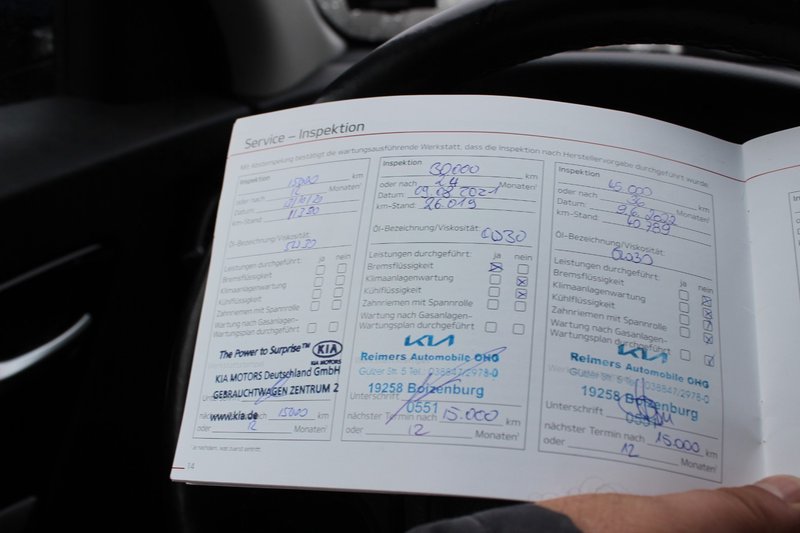 Service – Inspektion
Mit Abstempelung bestätigt die wartungsausführende Werkstatt, dass die Inspektion nach Herstellervorgabe durchgeführt wurde.
Inspektion 15000 km
oder nach 12 Monaten¹
Datum:
km-Stand:
Öl-Bezeichnung/Viskosität:
5W30
Leistungen durchgeführt: ja nein
Bremsflüssigkeit
Klimaanlagenwartung
Kühlflüssigkeit
Zahnriemen mit Spannrolle
Wartung nach Gasanlagen-
Wartungsplan durchgeführt
The Power to Surprise™ KIA
KIA MOTORS
KIA MOTORS Deutschland GmbH
GEBRAUCHTWAGEN ZENTRUM 2
www.kia.de
nächster Termin nach 15000 km
oder 12 Monaten¹
¹ je nachdem, was zuerst eintritt.
14
Inspektion 30000 km
oder nach 24 Monaten¹
Datum: 09.08.2021
km-Stand: 26.019
Öl-Bezeichnung/Viskosität:
0W30
Leistungen durchgeführt: ja nein
Bremsflüssigkeit
Klimaanlagenwartung
Kühlflüssigkeit
Zahnriemen mit Spannrolle
Wartung nach Gasanlagen-
Wartungsplan durchgeführt
KIA
Reimers Automobile OHG
Gülzer Str. 5 Tel.: 038847/2978-0
19258 Boizenburg
Unterschrift
0551
nächster Termin nach 15.000 km
oder 12 Monaten¹
Inspektion 45.000 km
oder nach 36 Monaten¹
Datum: 9.6.2022
km-Stand: 40.789
Öl-Bezeichnung/Viskosität:
0W30
Leistungen durchgeführt: ja nein
Bremsflüssigkeit
Klimaanlagenwartung
Kühlflüssigkeit
Zahnriemen mit Spannrolle
Wartung nach Gasanlagen-
Wartungsplan durchgeführt
KIA
Reimers Automobile OHG
Gülzer Str. 5 Tel.: 038847/2978-0
19258 Boizenburg
Unterschrift
nächster Termin nach 15.000 km
oder 12 Monaten¹